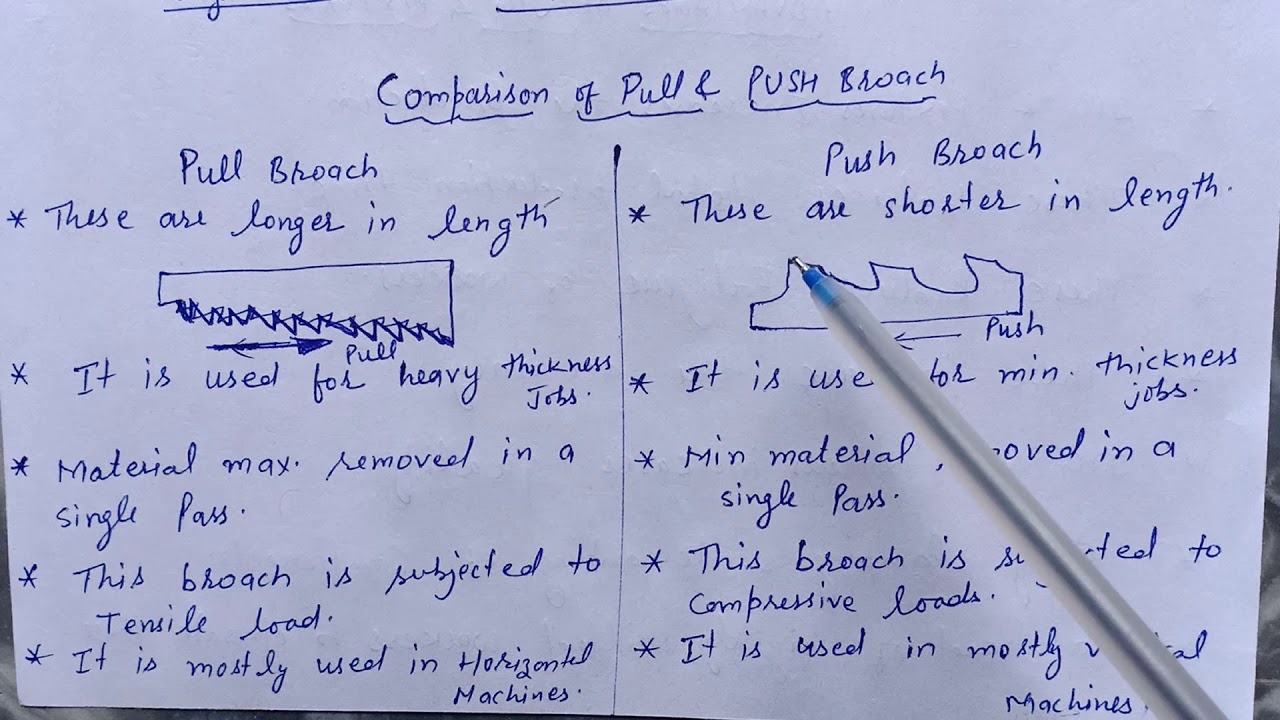 Comparison of Pull & PUSH Broach
Pull Broach
* These are longer in length
Pull
* It is used for heavy thickness
Jobs.
* Material max. removed in a
single Pass.
* This broach is subjected to
Tensile load.
* It is mostly used in Horizontal
Machines.
Push Broach
* These are shorter in length.
Push
* It is use for min. thickness
jobs.
* Min material in a
single Pass.
* This broach is to
Compressive loads.
* It is used in mostly
Machines.